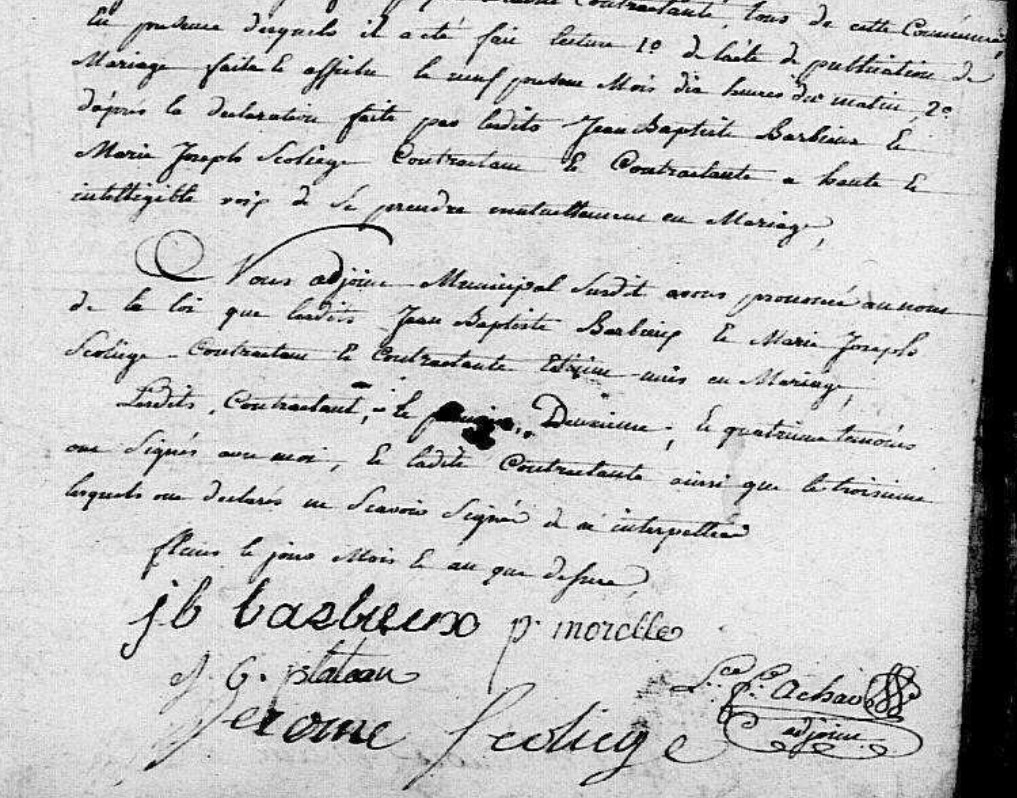 Contractante, tous de cette Commune
En presence desquels il a eté fait lecture 1o de l'acte de publication de
Mariage faite et affichée le neuf present Mois dix heures du matin, 2o
d'après la declaration faite par lesdits Jean Baptiste Barbieux Et
Marie Joseph Scoliege Contractant Et Contractante a haute Et
intelligible voix de Se prendre mutuellement en Mariage,
Nous adjoint Municipal Susdit avons prononcé au nom
de la loi que lesdits Jean Baptiste Barbieux Et Marie Joseph
Scoliege Contractant Et Contractante unis en Mariage,
Lesdits Contractant, Le Deuxieme, Et quatrieme temoins
ont Signés avec moi, Et ladite Contractante ainsi que le troisieme
lesquels ont declarés ne Scavoir Signé de ce interpellés
le jour Mois Et an que dessus,
jb barbieux p. morelle
J. G. plateau
L.ce F.s Achav
Jerome Scoliege
adjoint